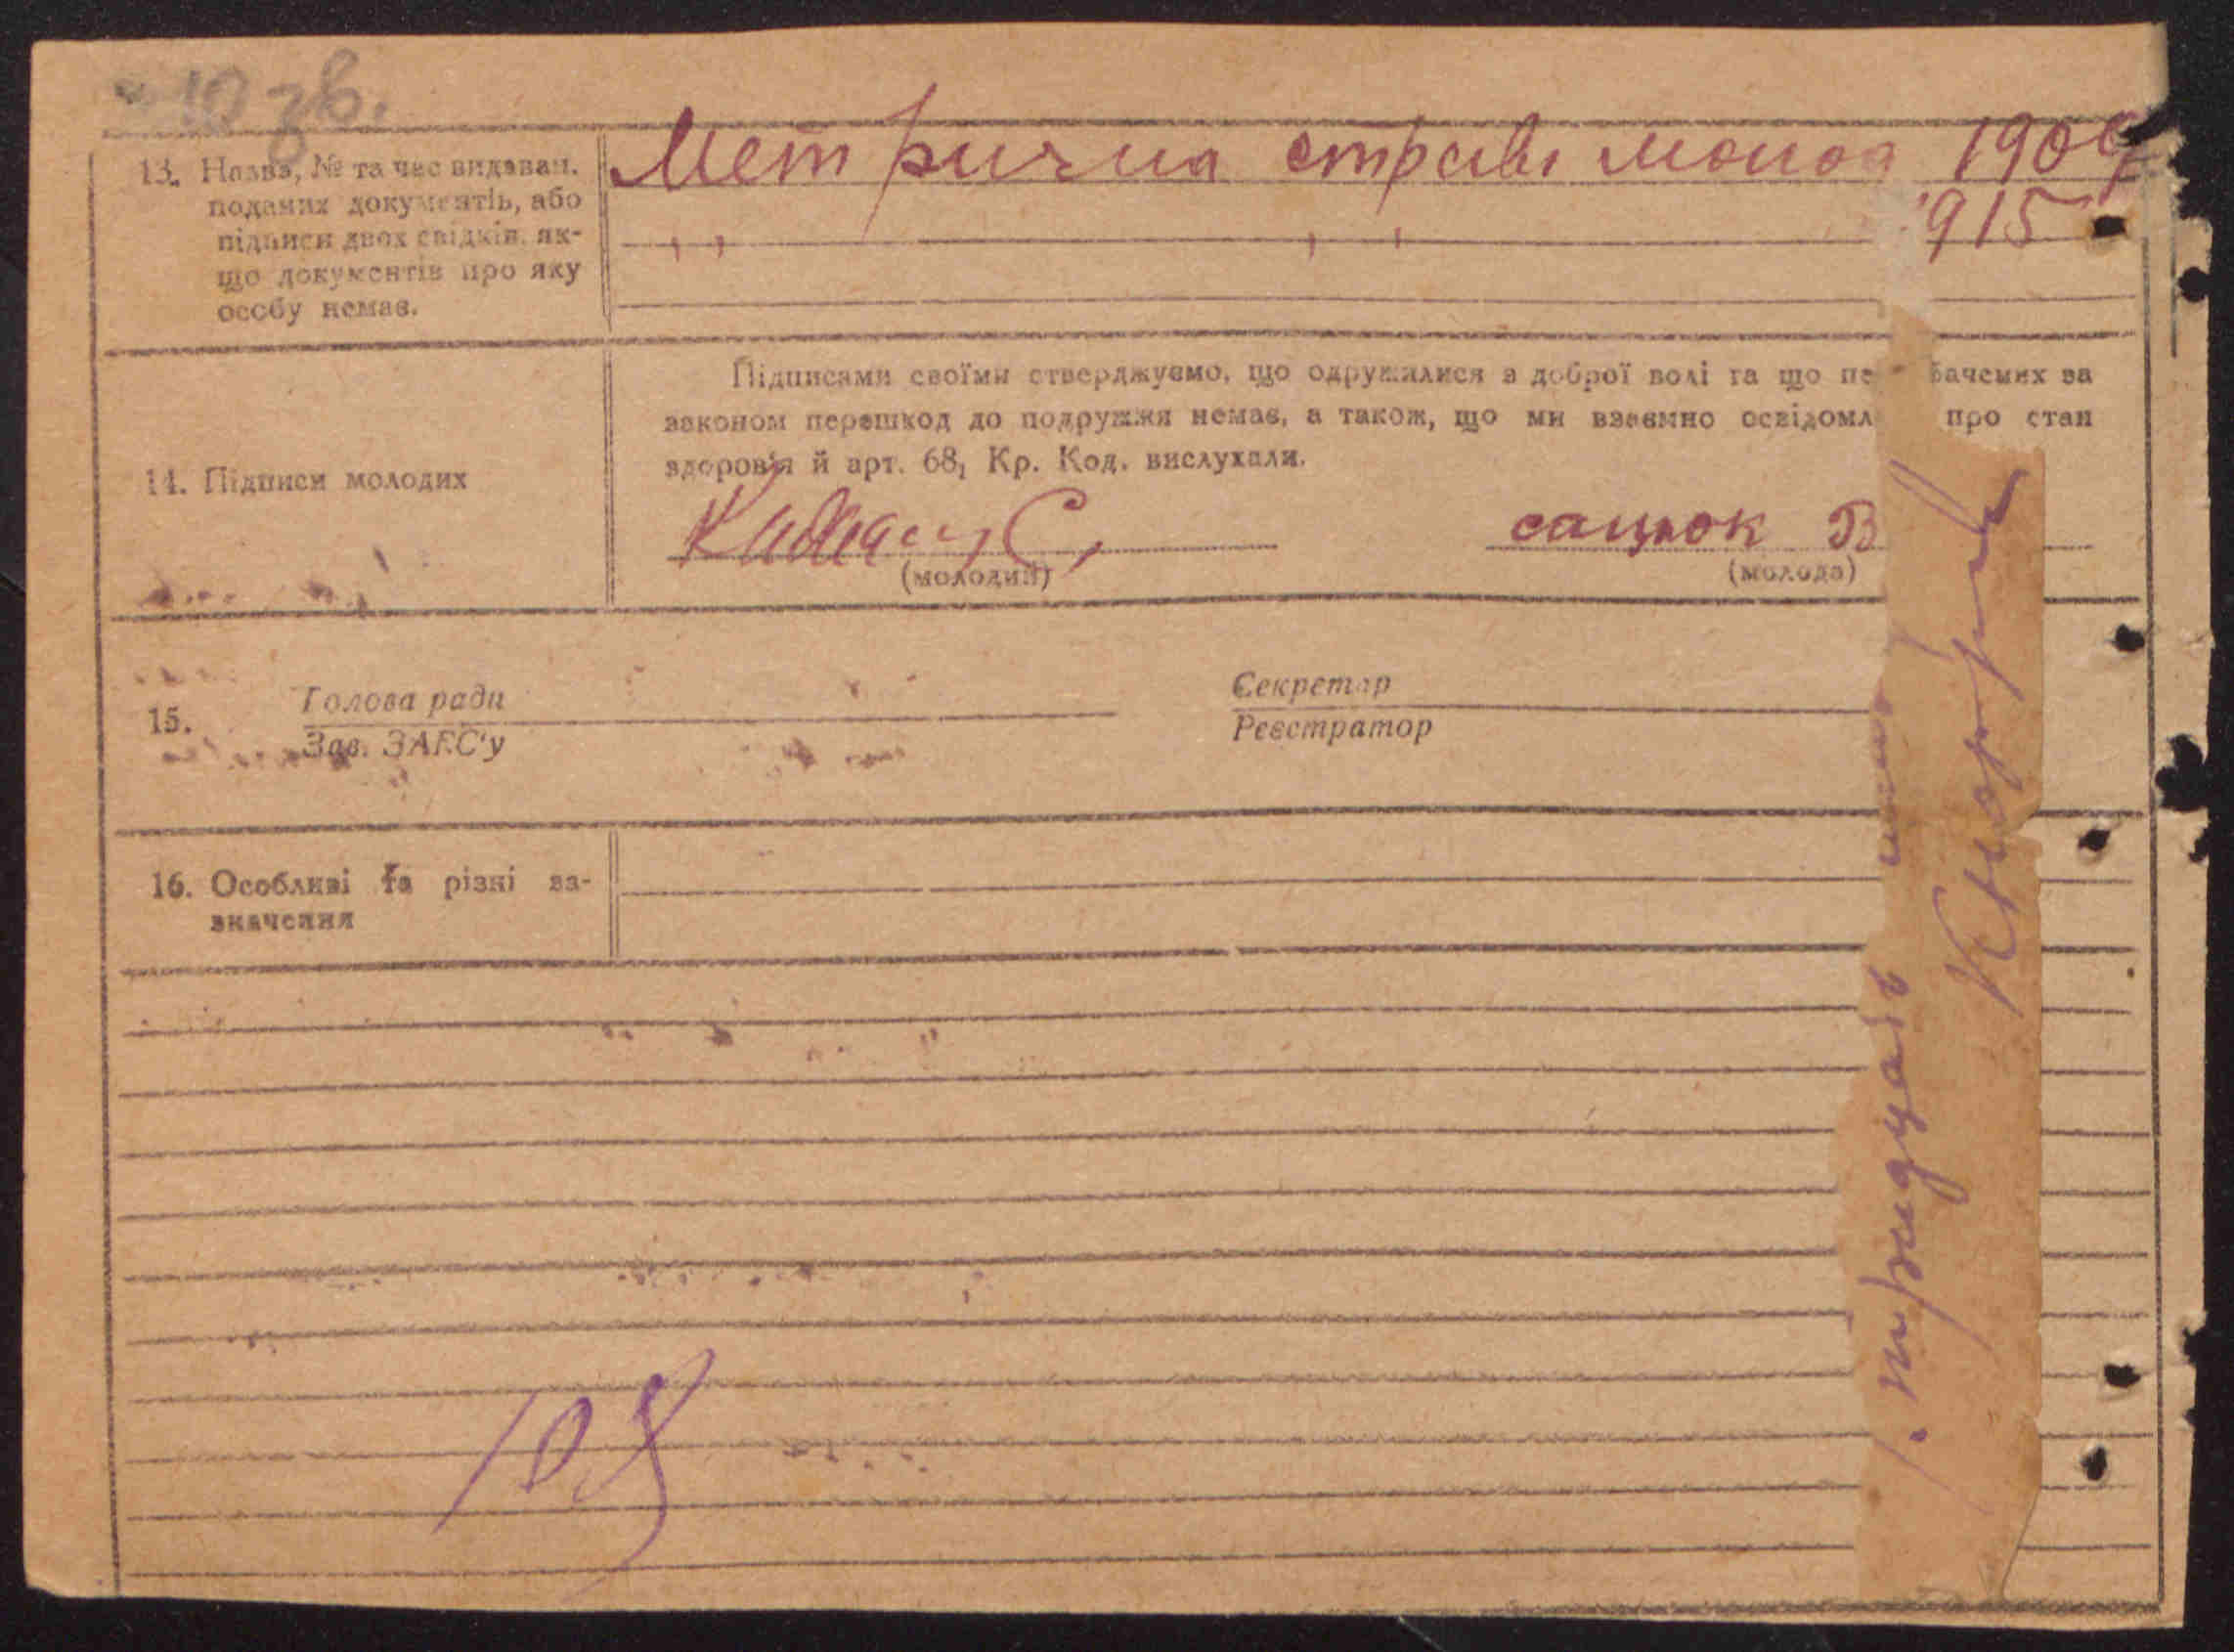 10 зв.
13. Назва, № та час видаван.
поданих документів, або
підписи двох свідків, як-
що документів про яку
особу немає.
Метрична 1909
" " 915
14. Підписи молодих
Підписами своїми стверджуємо, що одружилися з доброї волі та що пе бачених за
законом перешкод до подружжя немає, а також, що ми взаємно освідомл про стан
здоров'я й арт. 68, Кр. Код. вислухали.
С.
сацюк В
(молодий)
(молода)
15. Голова ради
Зав. ЗАГС'у
Секретар
Реєстратор
16. Особливі та різні за-
значення
108
тридцать